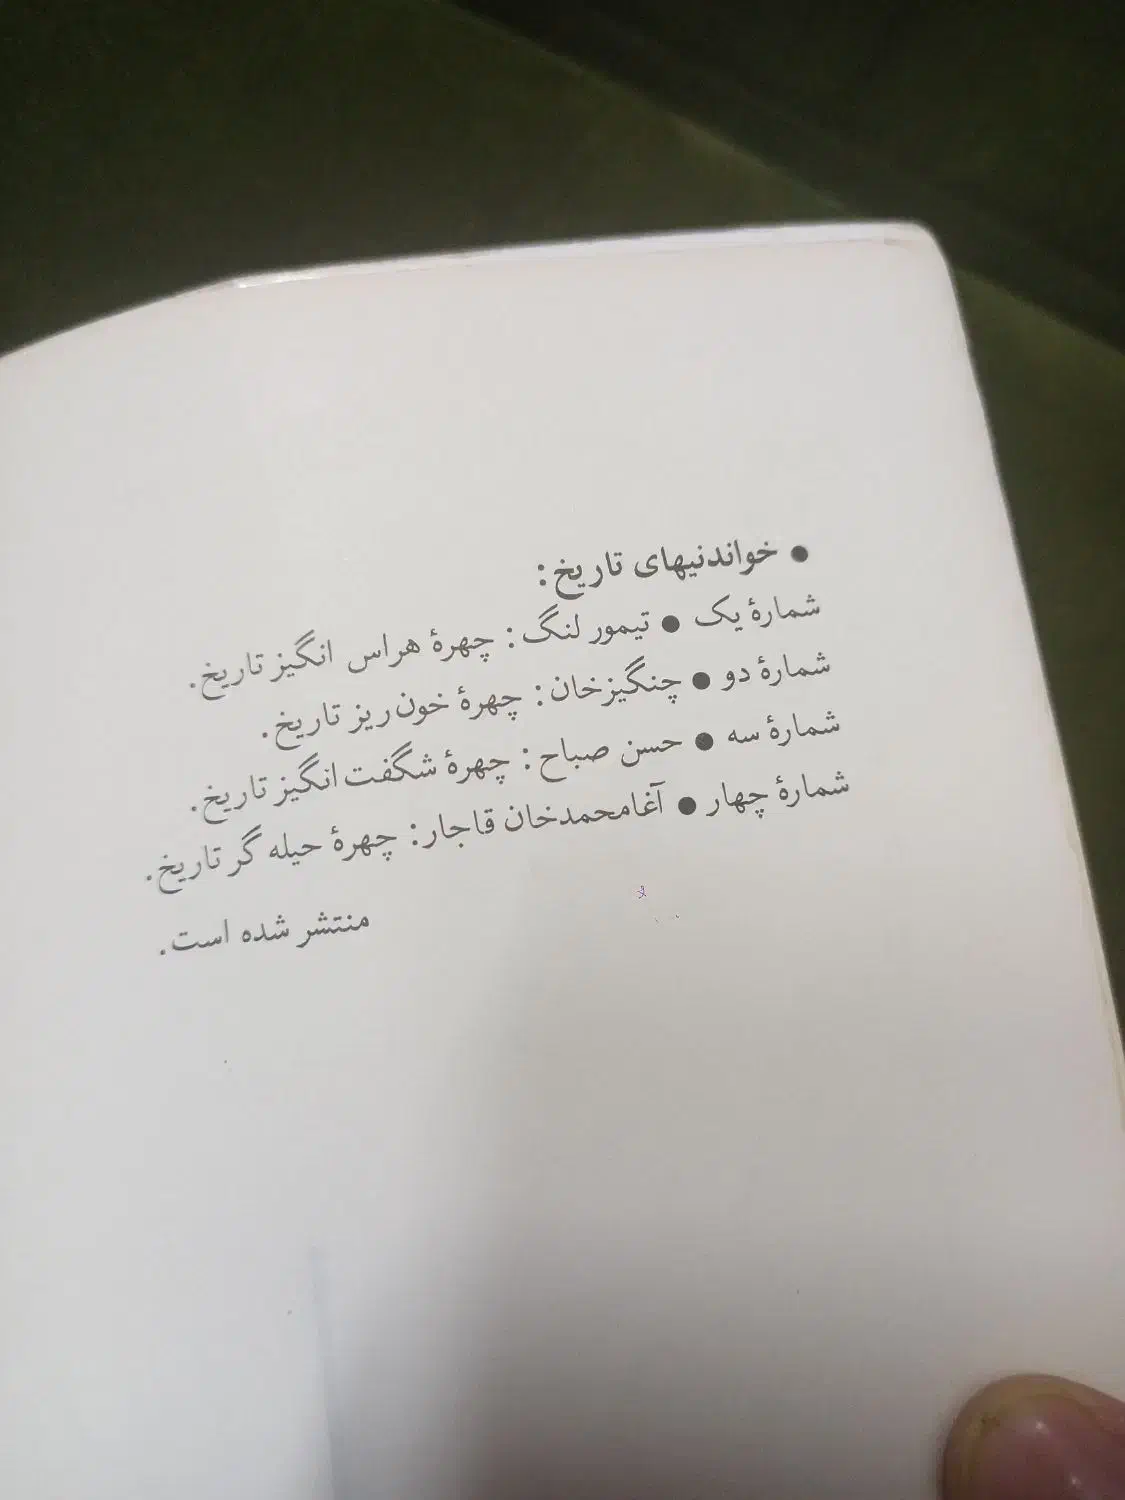 ● خواندنیهای تاریخ:
شمارهٔ یک ● تیمور لنگ: چهرهٔ هراس انگیز تاریخ.
شمارهٔ دو ● چنگیزخان: چهرهٔ خون‌ریز تاریخ.
شمارهٔ سه ● حسن صباح: چهرهٔ شگفت انگیز تاریخ.
شمارهٔ چهار ● آغامحمدخان قاجار: چهرهٔ حیله گر تاریخ.
منتشر شده است.